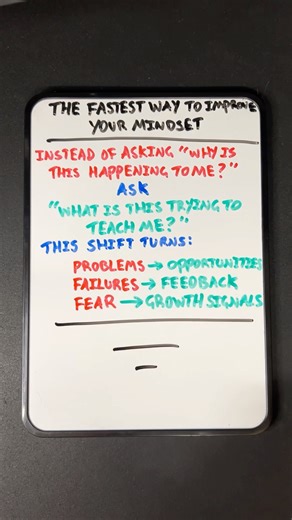 THE FASTEST WAY TO IMPROVE
YOUR MINDSET
INSTEAD OF ASKING "WHY IS
THIS HAPPENING TO ME?"
ASK
"WHAT IS THIS TRYING TO
TEACH ME?"
THIS SHIFT TURNS:
PROBLEMS → OPPORTUNITIES
FAILURES → FEEDBACK
FEAR → GROWTH SIGNALS